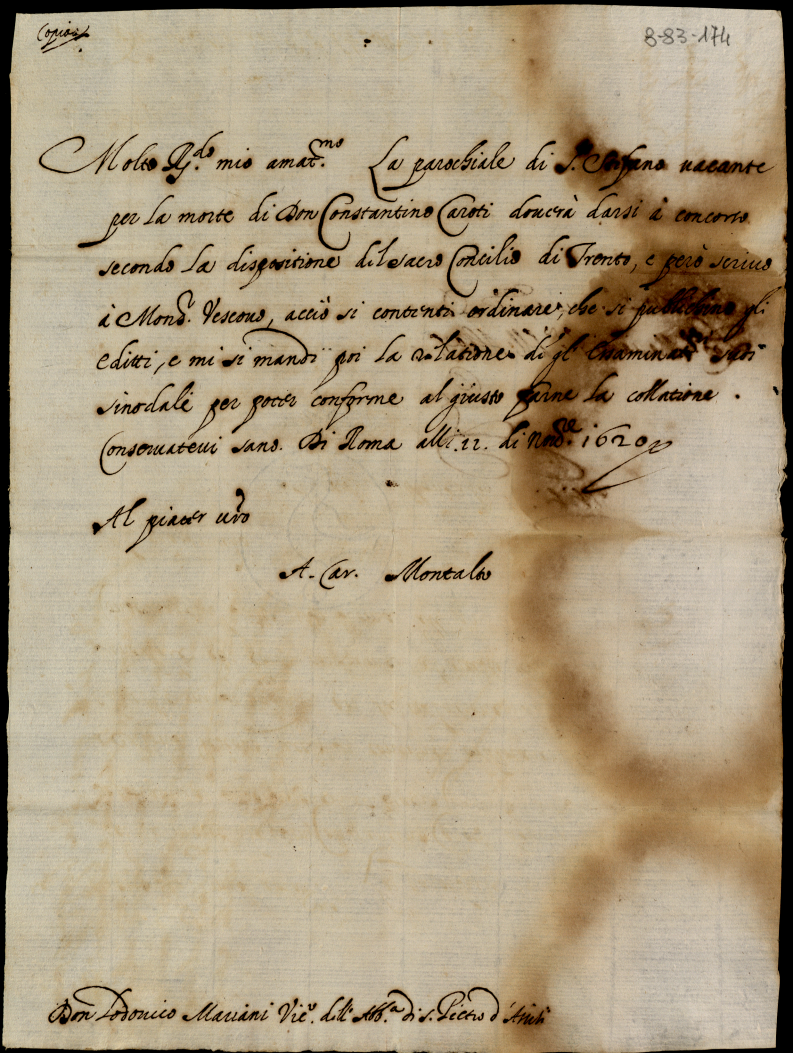 Copia
8-83-174
Molto R.do mio amat.mo La parochiale di S. Stefano vacante
per la morte di Don Constantino Caroti douerà darsi à concorso
secondo la dispositione dil sacro Concilio di Trento, e però scriuo
à Mons.r Vescouo, acciò si contenti ordinare, che si publichino gli
editti, e mi si mandi poi la relatione di gl' essaminatori
sinodali per poter conforme al giusto farne la collatione.
Conseruateui sano. Di Roma alli 22. di Nou.re 1620
Al piacer uro
A. Car. Montalto
Don Lodouico Mariani Vic.o dell' Abb.a di S. Pietro d'